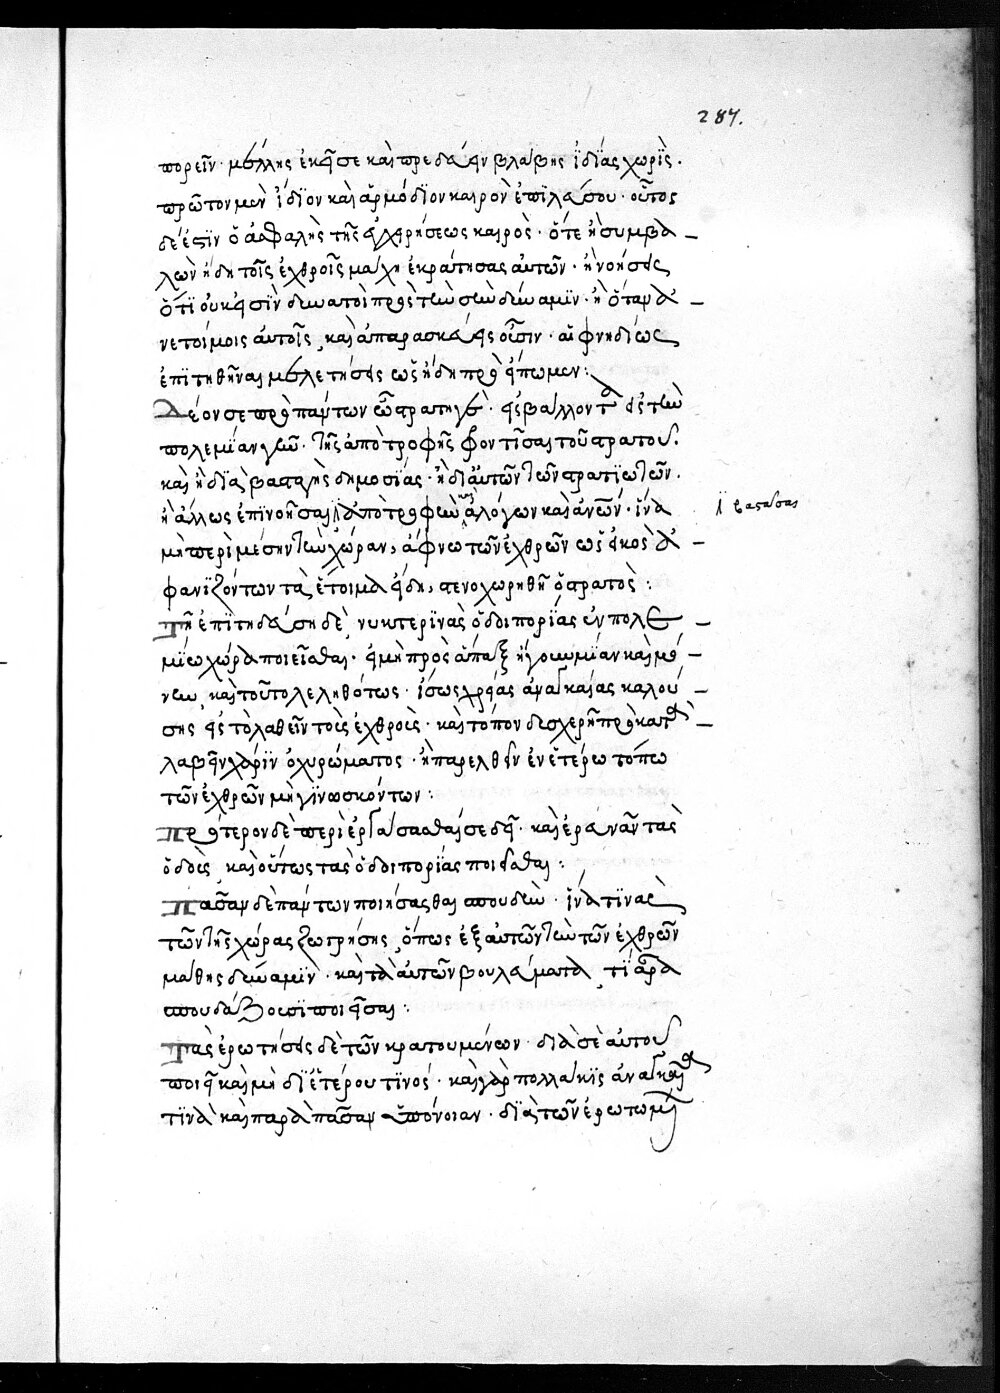 287.
πορεῖν· μέλλης ἐκεῖσε καὶ πρεδεύειν βλάβης ἰδίας χωρὶς.
πρῶτον μὲν ἴδιον καὶ ἁρμόδιον καιρὸν ἐπιλέγου· οὗτος
δέ ἐστιν ὁ ἀσφαλὴς τῆς ἐγχειρήσεως καιρὸς· ὅτε ἢ συμβα
λὼν ἤδη τοῖς ἐχθροῖς μάχη ἐκράτησας αὐτῶν· ἢ νοήσεις
ὅτι οὐκ εἰσὶν δυνατοὶ πρὸς τὴν σὴν δύναμιν· ἢ ὅταν ἀ
νετοίμοις αὐτοῖς, καὶ ἀπαρασκεύοις οὖσιν· αἰφνηδίως
ἐπιτηθῆναι μελετήσεις ὡς ἤδη προείπωμεν:
Δέον σε πρὸ πάντων ὦ στρατηγὲ· εἰσβάλλοντα εἰς τὴν
πολεμίαν γῆν· τῆς ἀποτροφῆς φροντίσαι τοῦ στρατοῦ.
καὶ ἢ διὰ βασταγῆς δημοσίας· ἢ δι' αὐτῶν τῶν στρατιωτῶν.
ἢ ἄλλως ἐπινοῆσαι ἀποτροφὴν ἀλόγων καὶ ἀνῶν· ἵνα
μὴ περὶ μέσην τὴν χώραν, ἄφνω τῶν ἐχθρῶν ὡς εἰκὸς ἀ
φανιζόντων τὰ ἕτοιμα εἴδη, στενοχωρηθῆ ὁ στρατὸς:
Μὴ ἐπιτηδεύση δὲ, νυκτερινὰς ὁδοιπορίας ἐν πολε
μίω χώρα ποιεῖσθαι· εἰ μὴ πρὸς ἅπαξ ἡγουν μίαν καὶ μό
νην, καὶ τοῦτο λεληθότως· ἴσως χρείας ἀναγκαίας καλού
σης εἰς τὸ λαθεῖν τοὺς ἐχθροὺς· καὶ τόπον δυσχερῆ προκατα
λαβεῖν χάριν ὀχυρώματος· ἢ παρελθεῖν ἐν ἑτέρω τόπω
τῶν ἐχθρῶν μὴ γινωσκόντων:
Πρότερον δὲ περιεργάσασθαί σε δεῖ· καὶ ἐρευνᾶν τὰς
ὁδοὺς, καὶ οὕτως τὰς ὁδοιπορίας ποιεῖσθαι:
Πᾶσαν δὲ πάντων ποιήσασθαι σπουδὴν· ἵνα τινὰς
τῶν τῆς χώρας ζωγρήσης, ὅπως ἐξ αὐτῶν τὴν τῶν ἐχθρῶν
μάθης δύναμιν· καὶ τὰ αὐτῶν βουλεύματα, τί ἆρα
σπουδάζουσι ποιῆσαι:
Τὰς ἐρωτήσεις δὲ τῶν κρατουμένων· διὰ σὲ αὐτοῦ
ποιεῖ καὶ μὴ δι' ἑτέρου τινός· καὶ γὰρ πολλάκις ἀναγκαῖα
τινὰ καὶ παρὰ πᾶσαν ὑπόνοιαν· διὰ τῶν ἐρωτωμένων